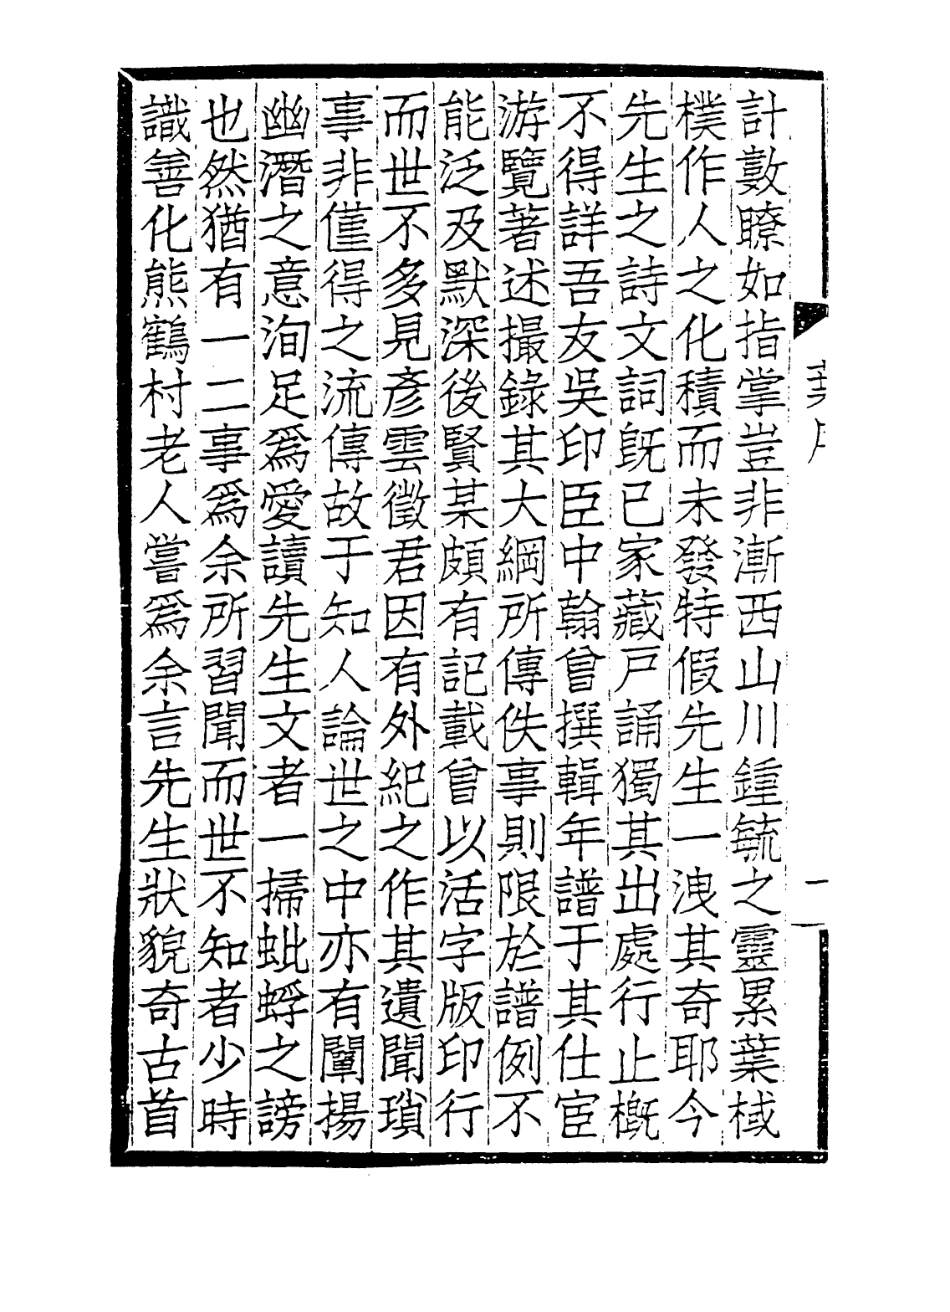 計數瞭如指掌豈非漸西山川鍾毓之靈累葉棫
樸作人之化積而未發特假先生一洩其奇耶今
先生之詩文詞旣已家藏戸誦獨其出處行止槪
不得詳吾友吳印臣中翰曾撰輯年譜于其仕宦
游覽著述撮錄其大綱所傳佚事則限於譜例不
能泛及默深後賢某頗有記載曾以活字版印行
而世不多見彥雲徵君因有外紀之作其遺聞瑣
事非僅得之流傳故于知人論世之中亦有闡揚
幽潛之意洵足爲愛讀先生文者一掃蚍蜉之謗
也然猶有一二事爲余所習聞而世不知者少時
識善化熊鶴村老人嘗爲余言先生狀貌奇古首
葉
一